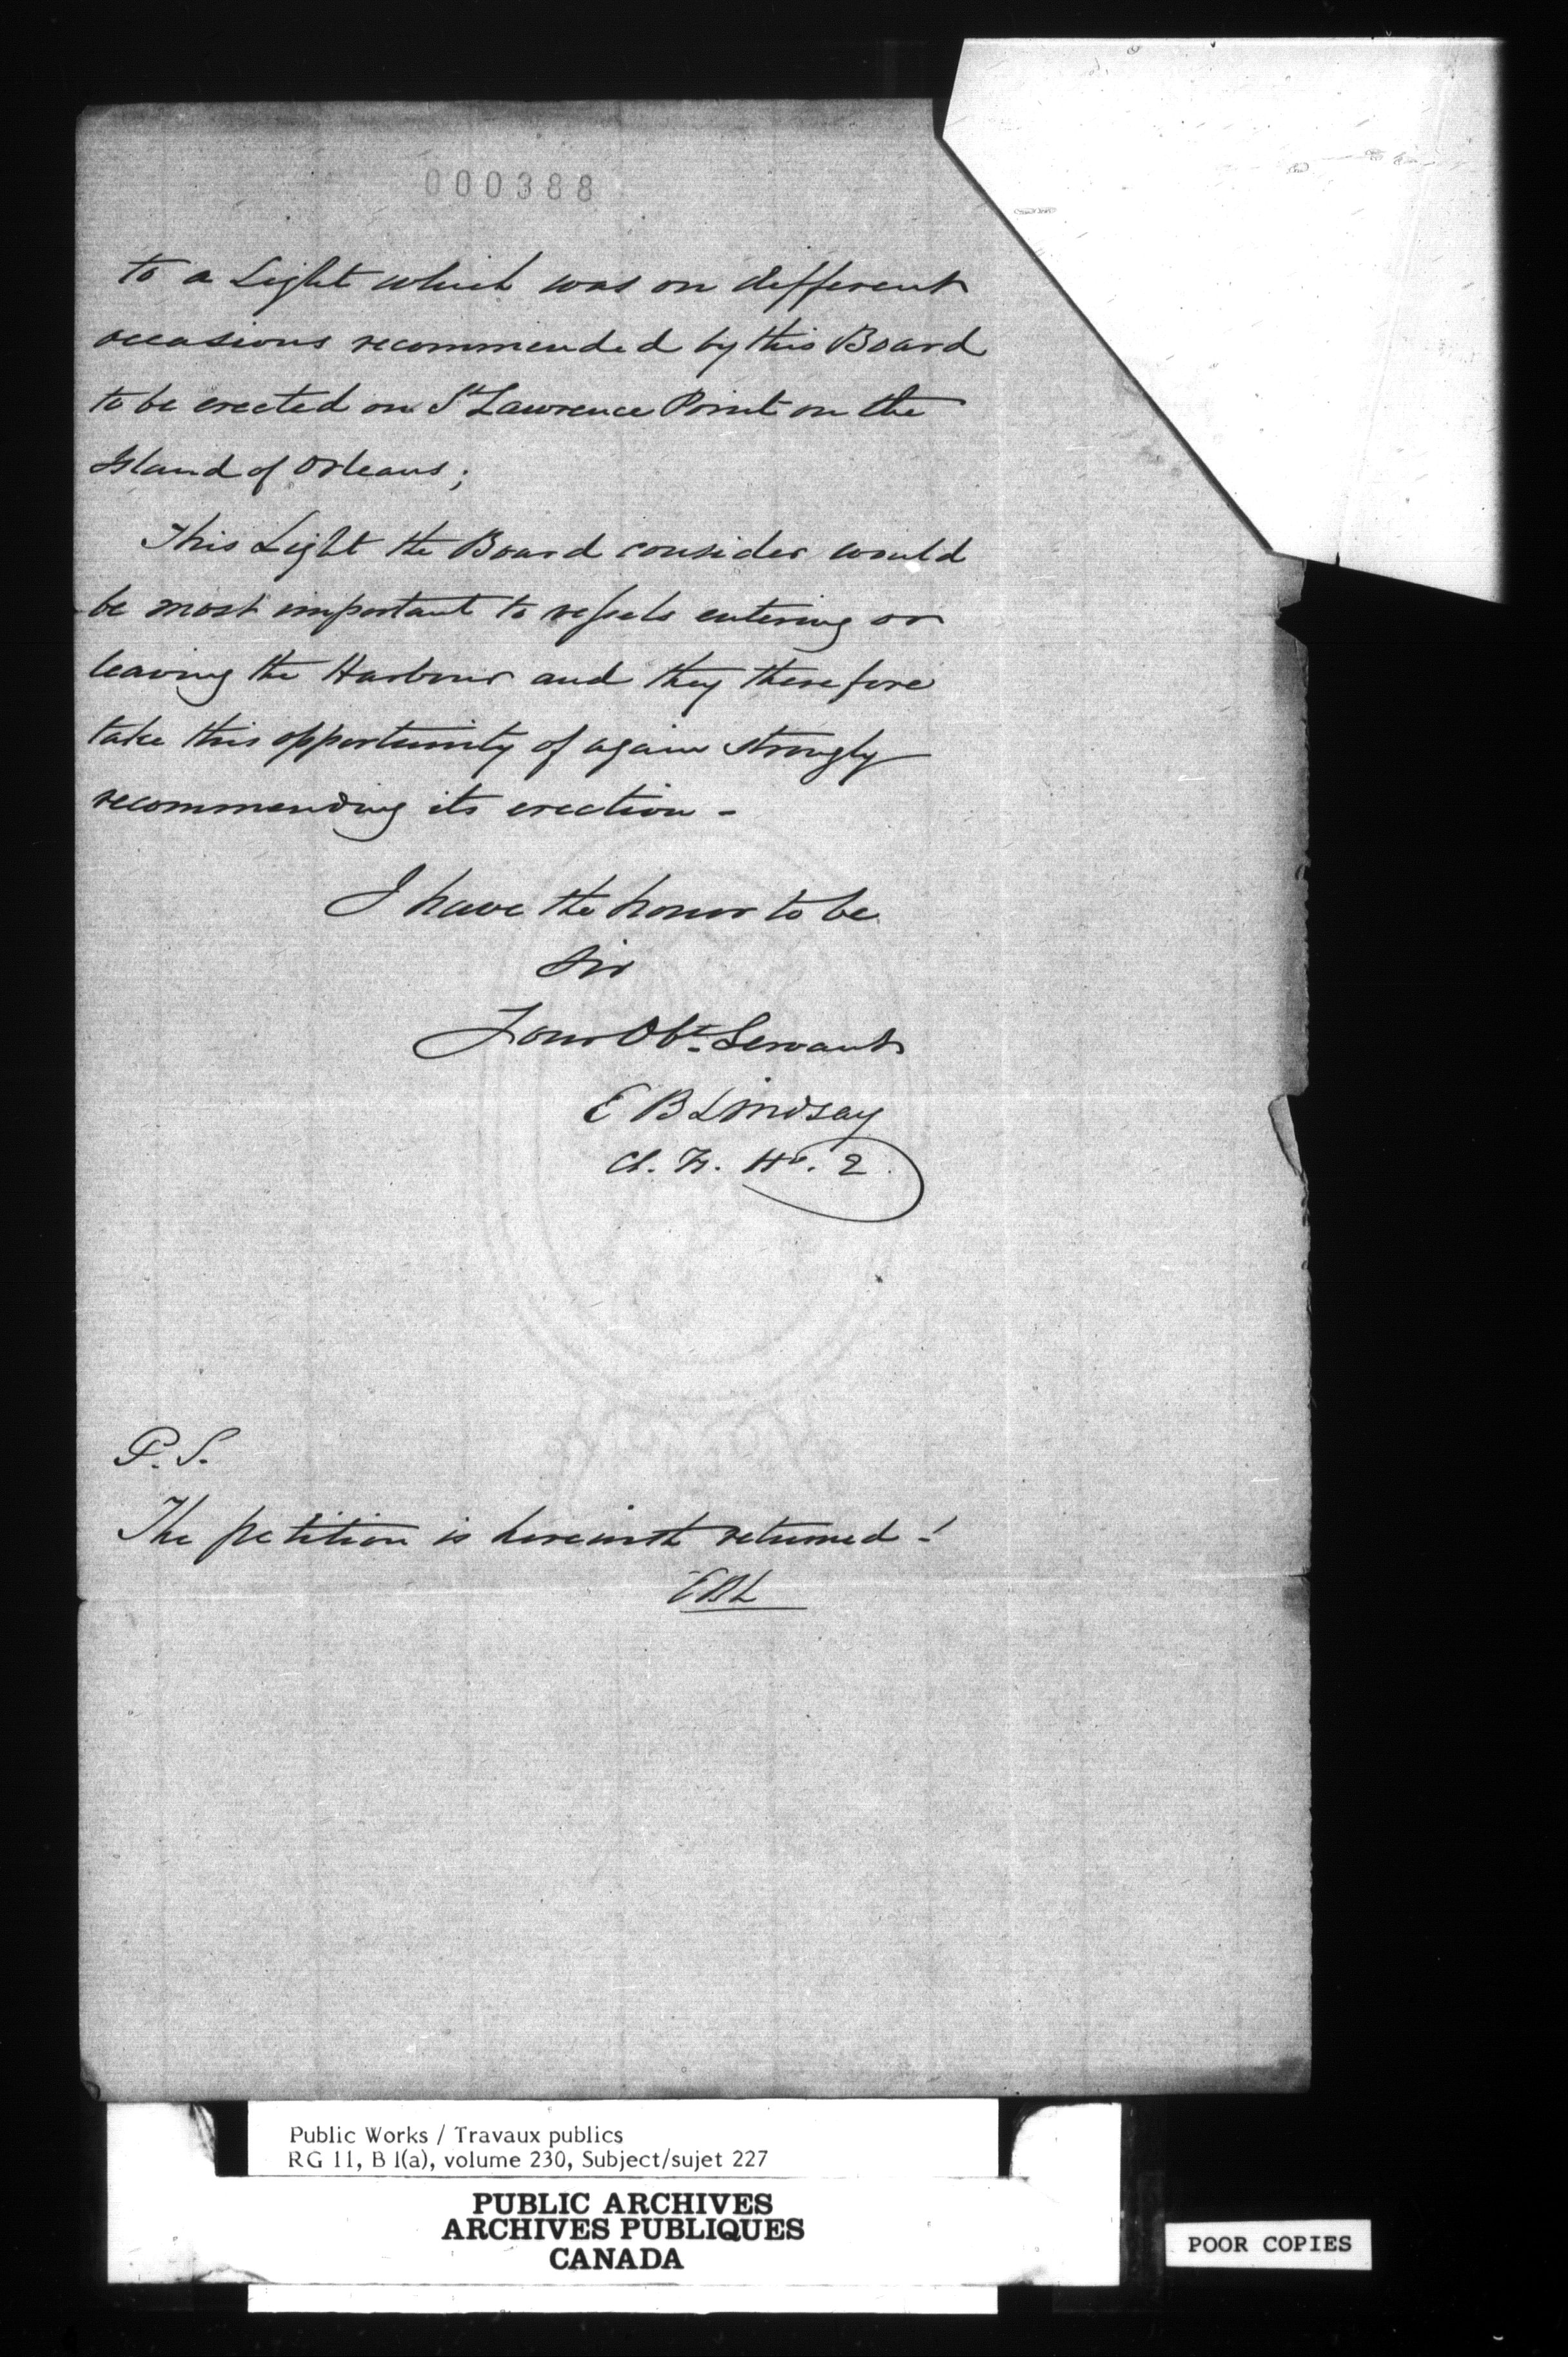 000388
to a Light which was on different
occasions recommended by this Board
to be erected on St Lawrence Point on the
Island of Orleans;
This Light the Board consider would
be most important to vessels entering or
leaving the Harbour and they therefore
take this opportunity of again strongly
recommending its erection -
I have the honor to be
Sir
Your Obt. Servant
E B Lindsay
Cl. T. He. Q.
P.S.
The petition is herewith returned -!
EBL
Public Works / Travaux publics
RG 11, B 1(a), volume 230, Subject/sujet 227
PUBLIC ARCHIVES
ARCHIVES PUBLIQUES
CANADA
POOR COPIES